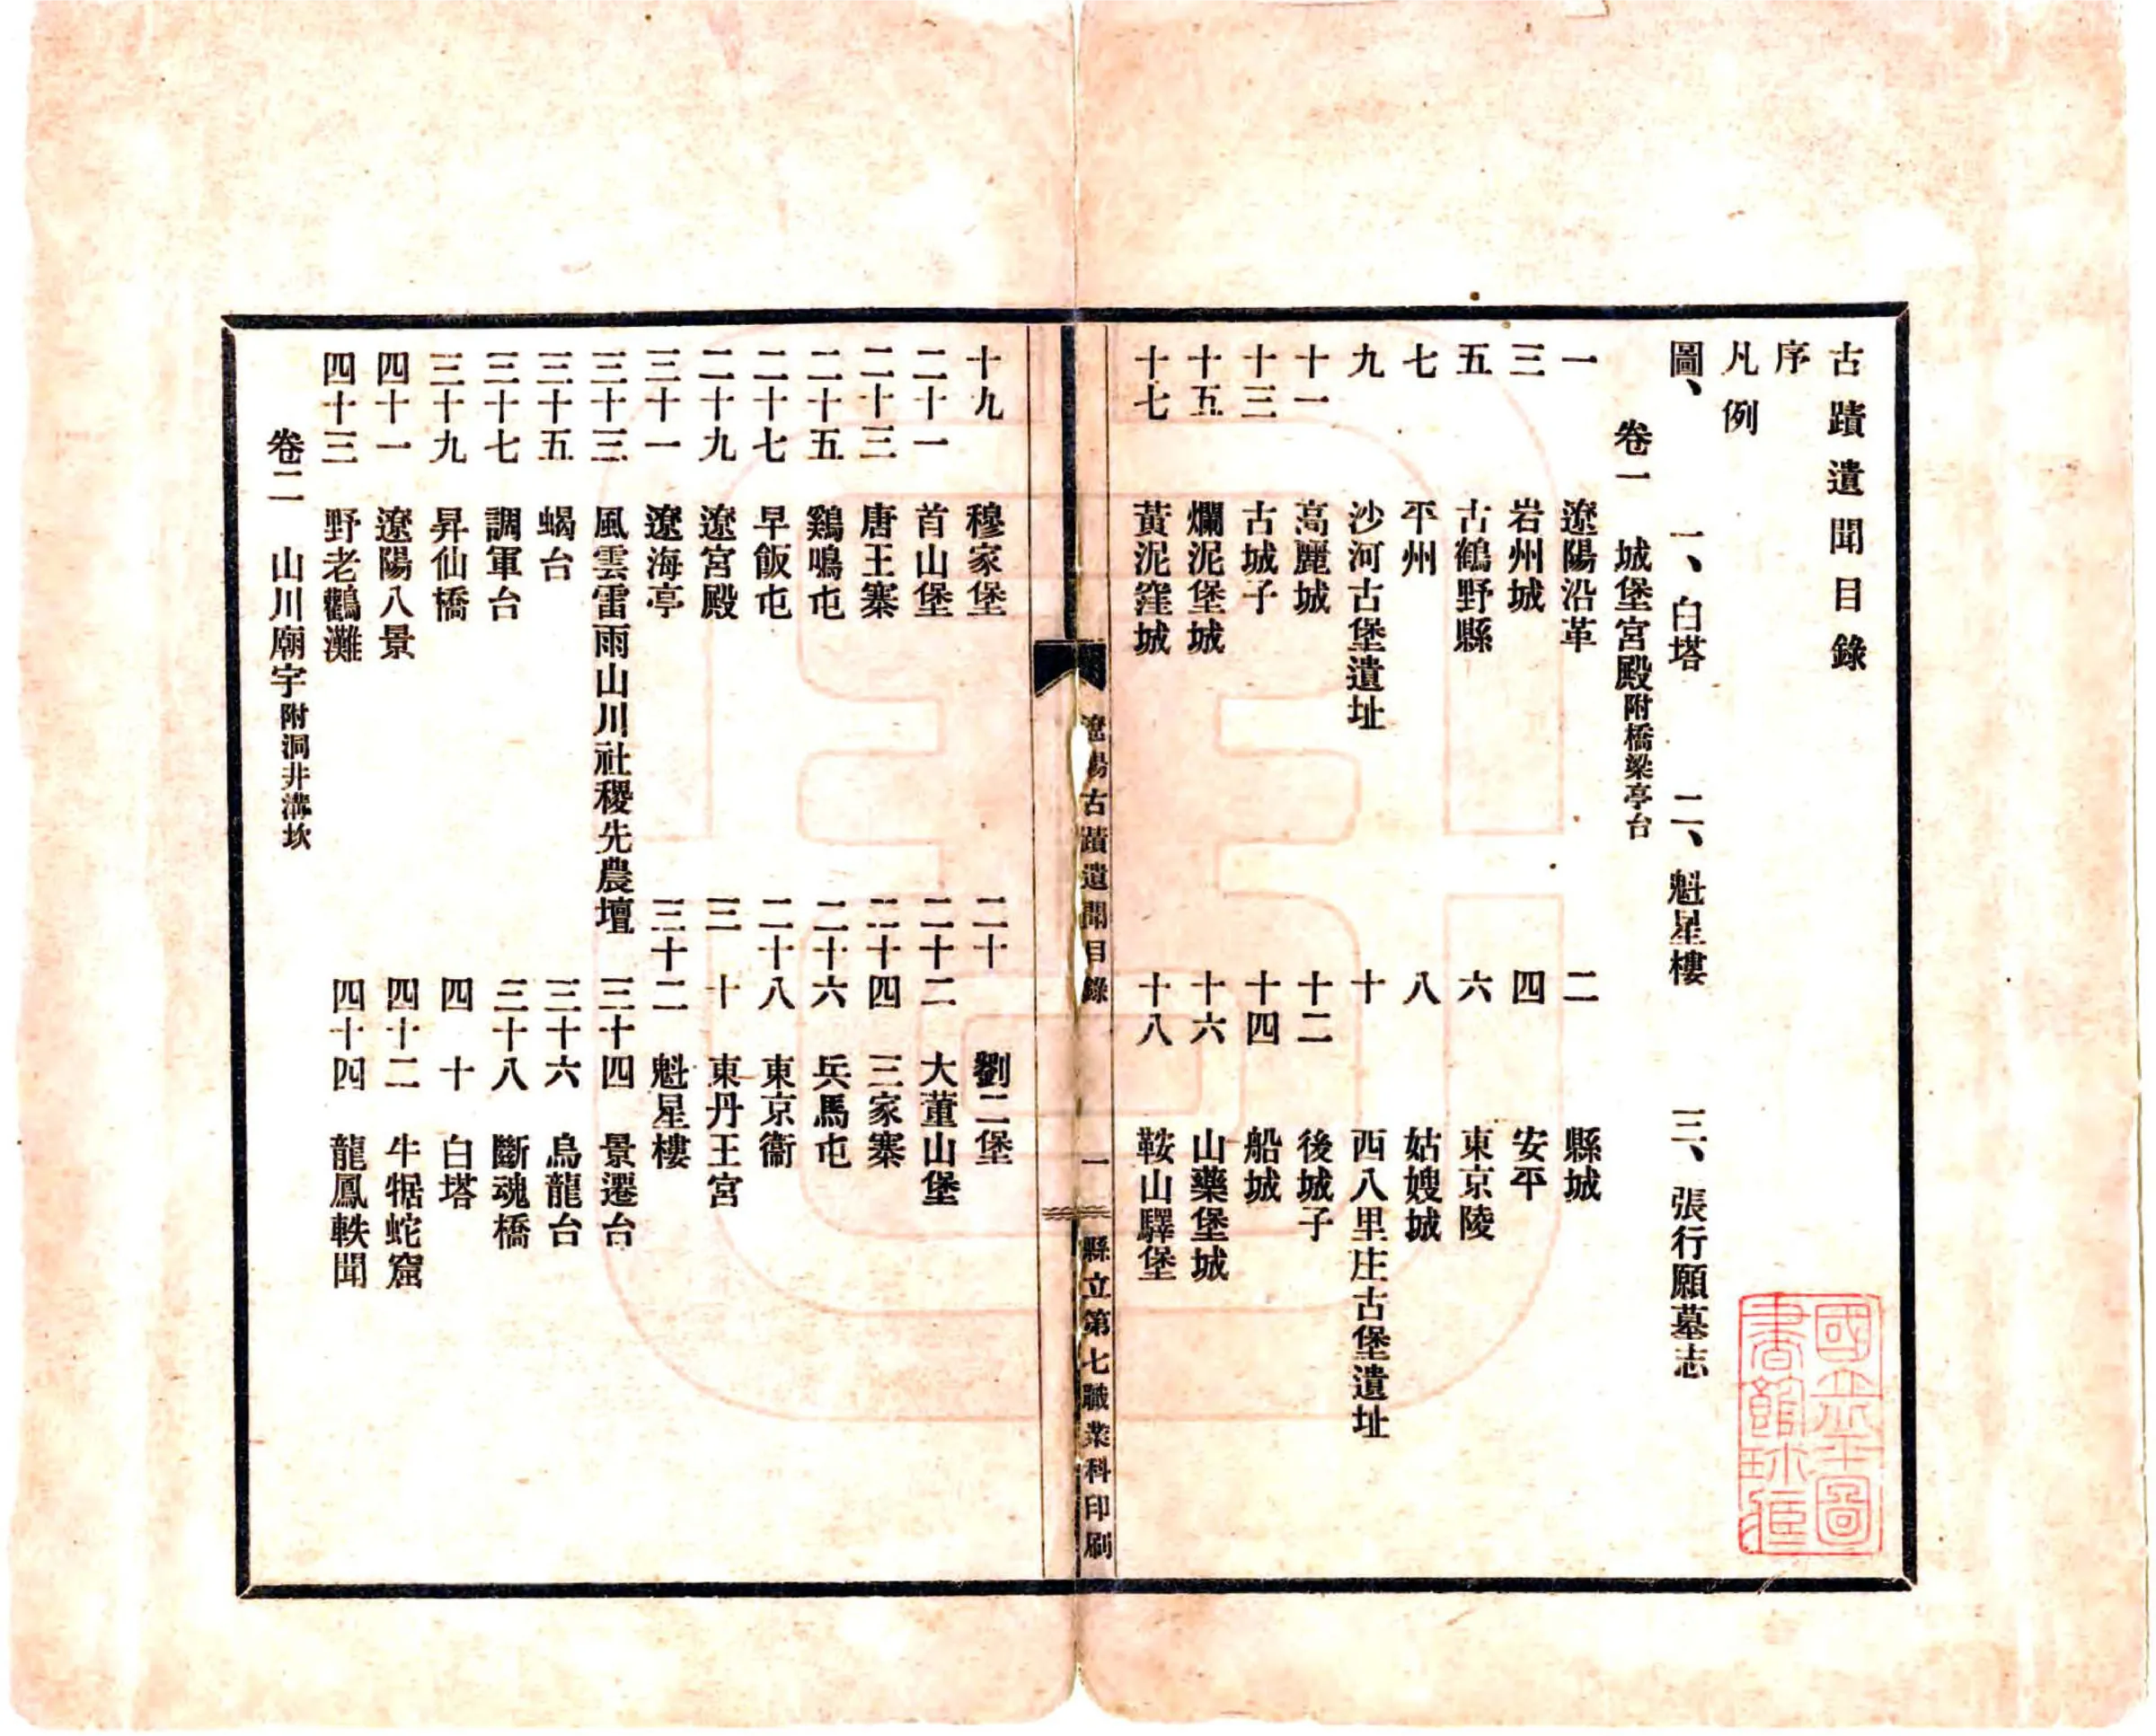 古蹟遺聞目錄
序
凡例
圖、 一、白塔 二、魁星樓 三、張行願墓志
卷一 城堡宮殿附橋梁亭台
一 遼陽沿革 二 縣城
三 岩州城 四 安平
五 古鶴野縣 六 東京陵
七 平州 八 姑嫂城
九 沙河古堡遺址 十 西八里庄古堡遺址
十一 高麗城 十二 後城子
十三 古城子 十四 船城
十五 爛泥堡城 十六 山藥堡城
十七 黃泥窪城 十八 鞍山驛堡
遼陽古蹟遺聞目錄 一 縣立第七職業科印刷
十九 穆家堡 二十 劉二堡
二十一 首山堡 二十二 大董山堡
二十三 唐王寨 二十四 三家寨
二十五 鷄鳴屯 二十六 兵馬屯
二十七 早飯屯 二十八 東京衞
二十九 遼宮殿 三十 東丹王宮
三十一 遼海亭 三十二 魁星樓
三十三 風雲雷雨山川社稷先農壇 三十四 景遷台
三十五 蝎台 三十六 烏龍台
三十七 調軍台 三十八 斷魂橋
三十九 昇仙橋 四十 白塔
四十一 遼陽八景 四十二 牛犋蛇窟
四十三 野老鸛灘 四十四 龍鳳軼聞
卷二 山川廟宇附洞井溝坎
國立北平圖
書館珍藏